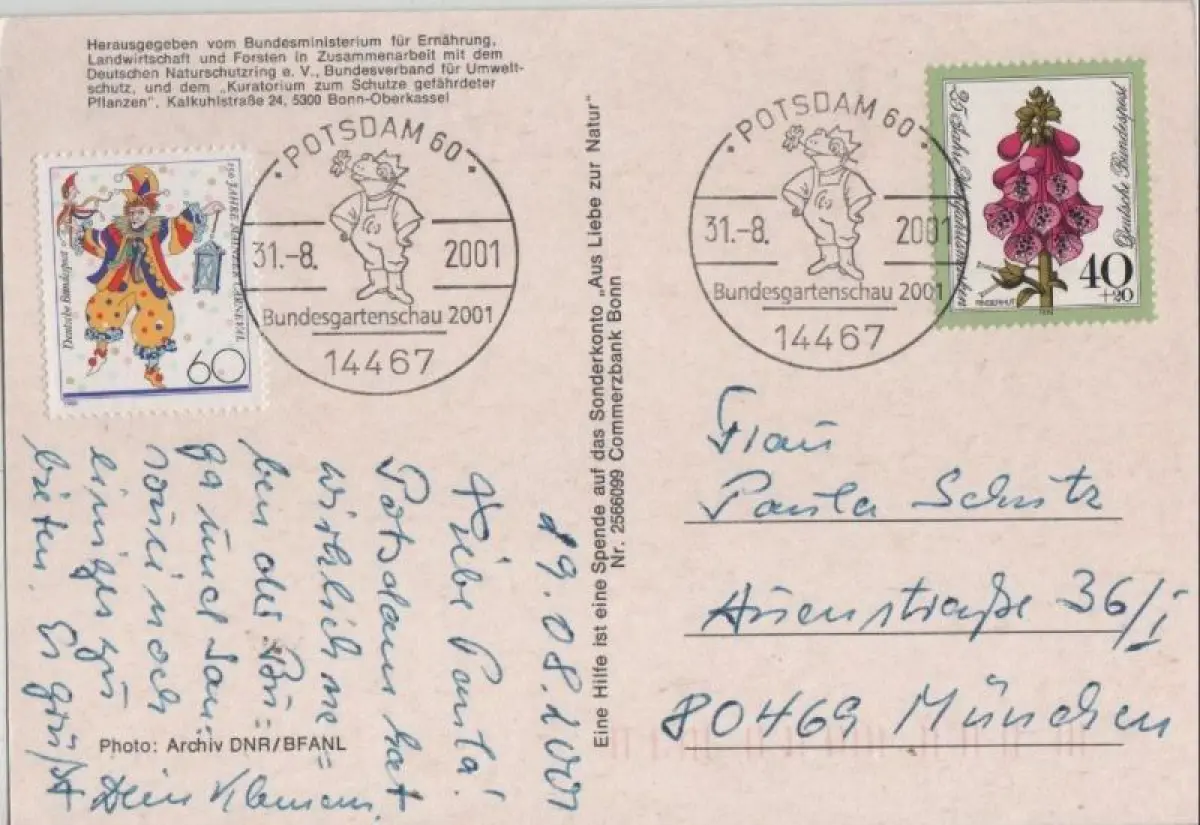 Herausgegeben vom Bundesministerium für Ernährung,
Landwirtschaft und Forsten in Zusammenarbeit mit dem
Deutschen Naturschutzring e. V., Bundesverband für Umwelt-
schutz, und dem „Kuratorium zum Schutze gefährdeter
Pflanzen", Kalkuhlstraße 24, 5300 Bonn-Oberkassel
Deutsche Bundespost
150 JAHRE MAINZER CARNEVAL
60
POTSDAM 60
31.-8. 2001
Bundesgartenschau 2001
14467
POTSDAM 60
31.-8. 2001
Bundesgartenschau 2001
14467
25 Jahre Jugendmarken
Deutsche Bundespost
40
+20
FINGERHUT
Eine Hilfe ist eine Spende auf das Sonderkonto „Aus Liebe zur Natur"
Nr. 2566099 Commerzbank Bonn
29.08.2001
Liebe Paula!
Potsdam hat
wirklich ne=
ben der Bu=
ga und San=
souci noch
einiges zu
bieten. Es grüßt
Dein Klemens.
Photo: Archiv DNR/BFANL
Frau
Paula Schutz
Auenstraße 36/I
80469 München